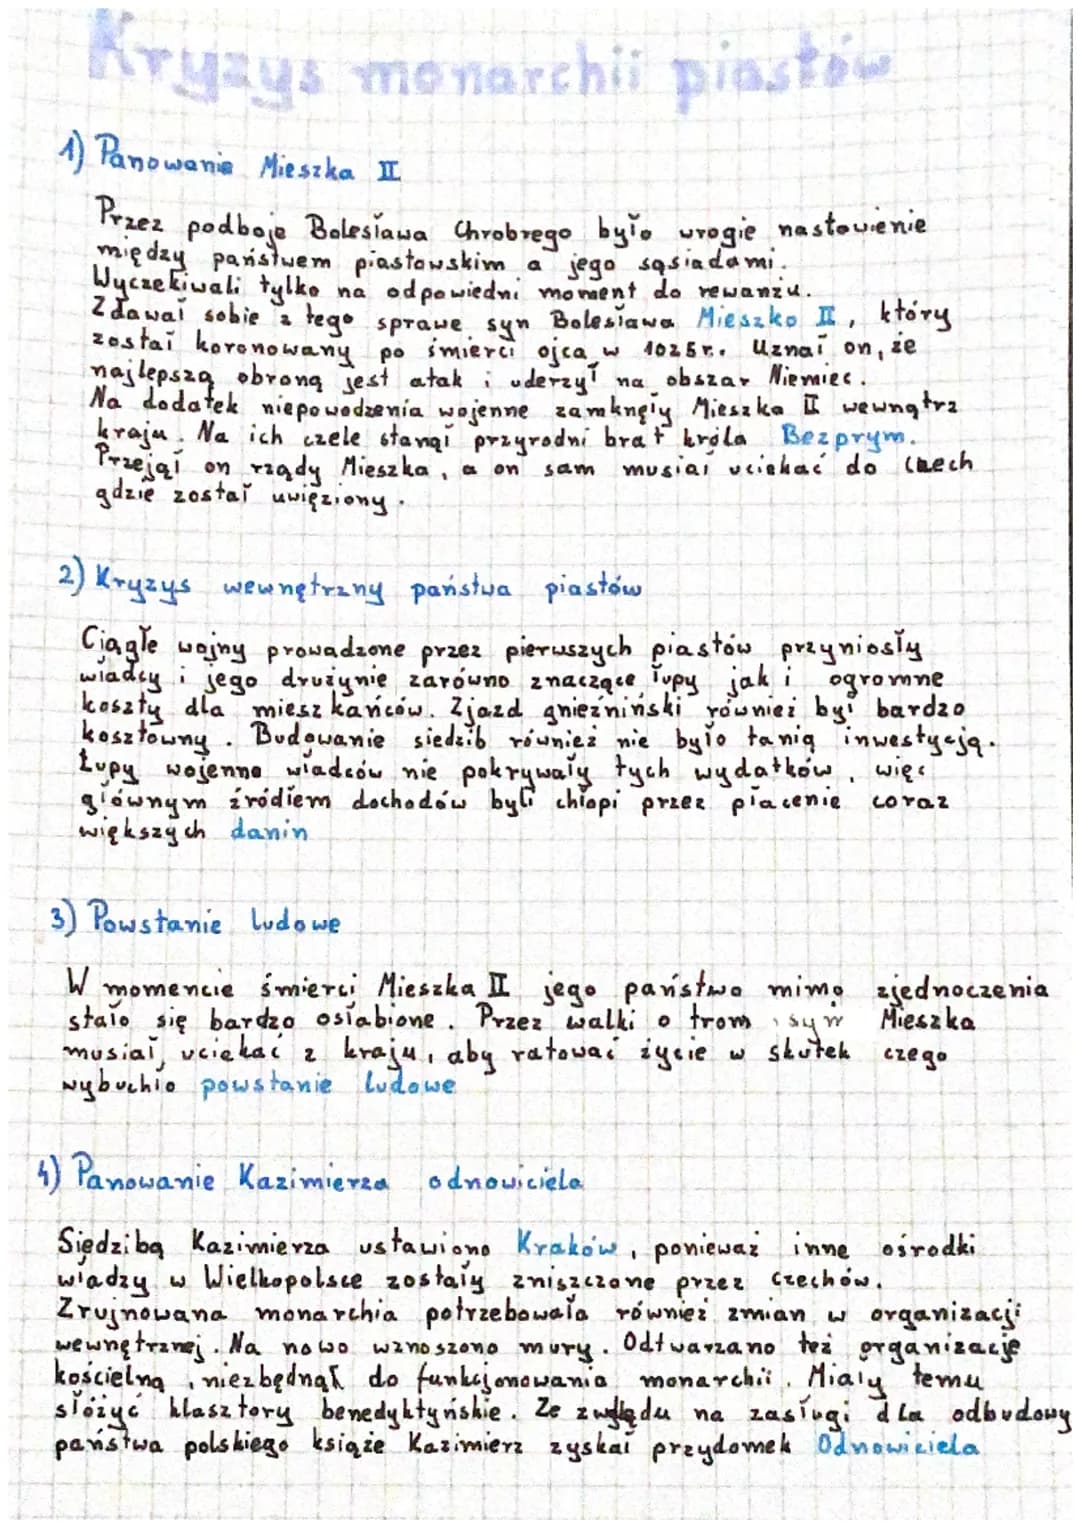 Kryzys monarchii piastów
1) Panowanie Mieszka II
Przez podboje Bolesława Chrobrego było wrogie nastawienie
między państwem piastowskim a jego sąsiadami.
Wyczekiwali tylko na odpowiedni moment do rewanżu.
Zdawał sobie z tego sprawe syn Bolesława Mieszko II, który
został koronowany po śmierci ojca w 1025r. Uznał on, że
najlepszą obroną jest atak i uderzył na obszar Niemiec.
Na dodatek niepowodzenia wojenne zamknęły Mieszka II wewnątrz
kraju. Na ich czele stanął przyrodni brat króla Bezprym.
Przejął on rządy Mieszka, a on sam musiał uciekać do Czech
gdzie został uwięziony.
2) Kryzys wewnętrzny państwa piastów
Ciągłe wojny prowadzone przez pierwszych piastów przyniosły
władcy i jego drużynie zarówno znaczące łupy jak i ogromne
koszty dla mieszkańców. Zjazd gnieźniński również był bardzo
kosztowny. Budowanie siedzib również nie było tanią inwestycją.
Łupy wojenne władców nie pokrywały tych wydatków, więc
głównym źródłem dochodów byli chłopi przez płacenie coraz
większych danin
3) Powstanie ludowe
W momencie śmierci Mieszka II jego państwo mimo zjednoczenia
stało się bardzo osłabione. Przez walki o tron syn Mieszka
musiał uciekać z kraju, aby ratować życie w skutek czego
wybuchło powstanie ludowe
4) Panowanie Kazimierza odnowiciela
Siędzibą Kazimierza ustawiono Kraków, ponieważ inne ośrodki
władzy w Wielkopolsce zostały zniszczone przez Czechów.
Zrujnowana monarchia potrzebowała również zmian w organizacji
wewnętrznej. Na nowo wznoszono mury. Odtwarzano też organizacje
kościelną, niezbędną do funkcjonowania monarchii. Miały temu
słóżyć klasztory benedyktyńskie. Ze względu na zasługi dla odbudowy
państwa polskiego książe Kazimierz zyskał przydomek Odnowiciela